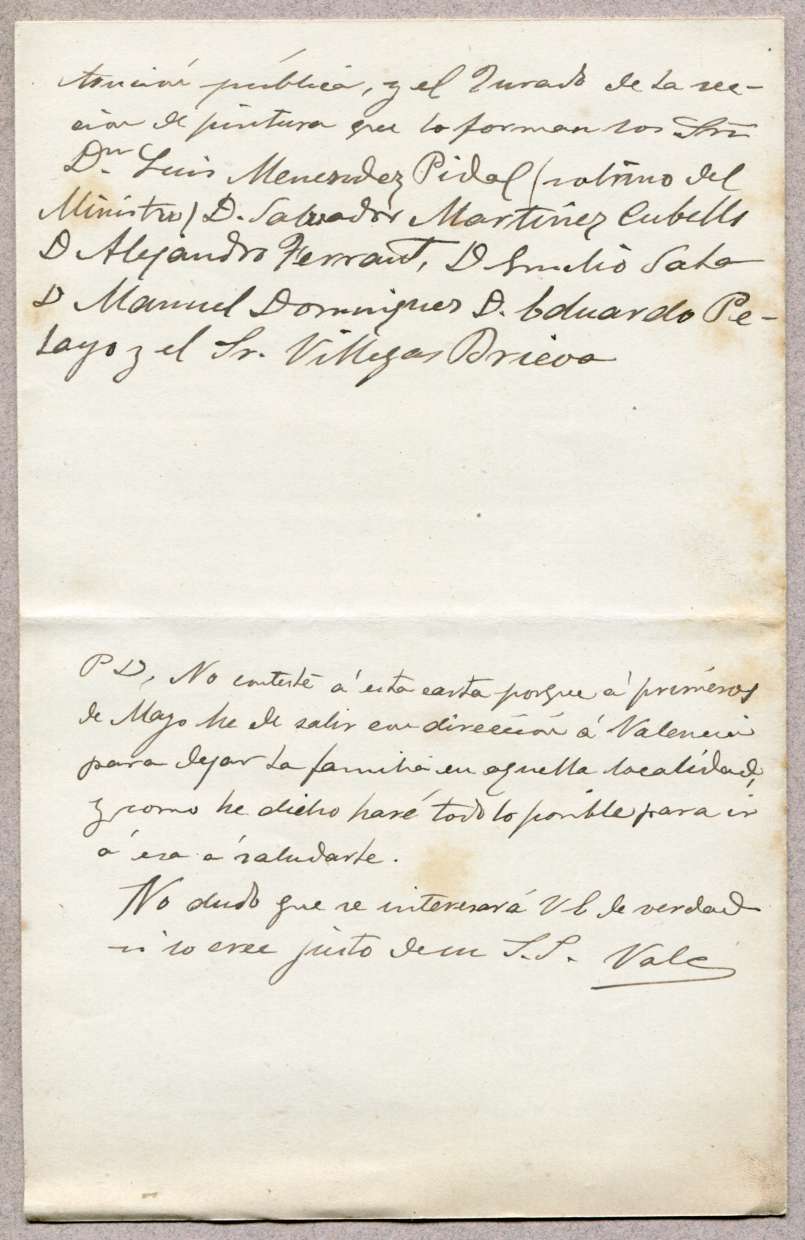 trucción pública, y el Jurado de la sec-
ción de pintura que lo forman los Sres
Dn Luis Menendez Pidal (sobrino del
Ministro) D. Salvador Martinez Cubells
D Alejandro Ferrant, D Emilio Sala
D Manuel Dominguez D. Eduardo Pe-
layo y el Sr. Villegas Brieva
P D, No conteste á esta carta porque á primeros
de Mayo he de salir con dirección á Valencia
para dejar la familia en aquella localidad,
y como he dicho haré todo lo posible para ir
á esa á saludarle.
No dudo que se interesará V de verdad
si lo cree justo de su S.S. Vale